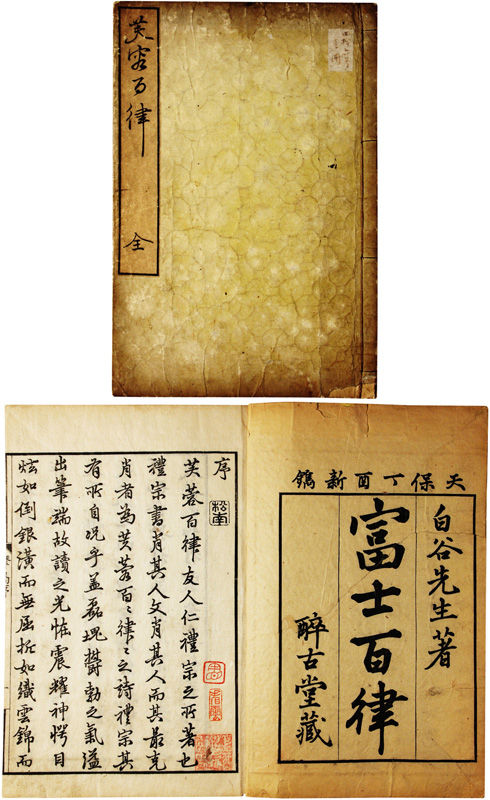 芙容百律
全
天保丁酉新鐫
白谷先生著
富士百律
醉古堂藏
序
松南
芙蓉百律友人仁禮宗之所著也
禮宗書肖其人文肖其人而其最克
肖者為芙蓉百々律々之詩禮宗其
有所自況乎益磊塊鬱勃之氣溢
出筆端故讀之光怪震耀神愕目
炫如倒銀潢而無屈折如織雲錦而